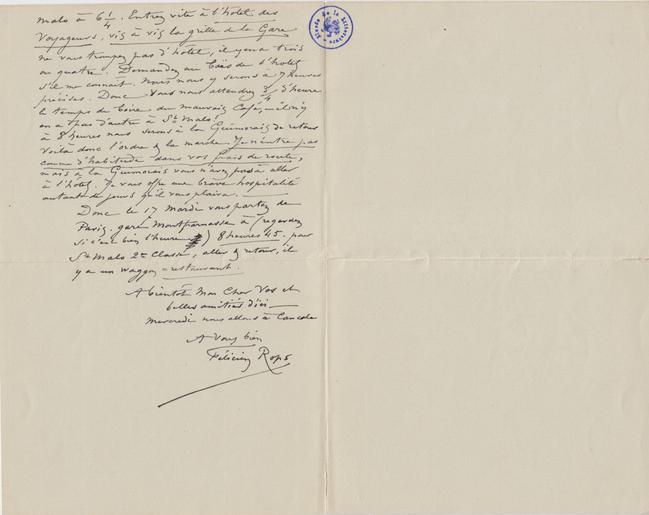 Malo à 6 1/4. Entrez vite à l'hotel des
Voyageurs, vis à vis la grille de la Gare
ne vous trompez pas d'hotel, il y en a trois
ou quatre. Demandez au bas de l'hotel
s'il me connait. Nous nous y serons à 7 heures
précises. Donc vous nous attendrez 3/4 d'heure
le temps de boire du mauvais Café,
en a pas d'autre à St Malo!
à 8 heures nous serons à la Guimorais de retour
Voilà donc l'ordre & la marche. Je n'entre pas
comme d'habitude dans vos frais de route,
mais à la Guimorais vous n'avez pas à aller
à l'hotel. Je vous offre une brave hospitalité
autant de jours qu'il vous plaira.
Donc le 17 Mardi vous partez de
Paris, gare Montparnasse à (regardez
si c'est bien l'heure) 8 heures 45. pour
St Malo 2e Classe, aller & retour, il
y a un waggon = restaurant.
A bientôt Mon Cher Vos et
belles amitiés d'ici
Mercredi nous allons à Cancale
A Vous bien
Félicien Rops
Musée de la Littérature